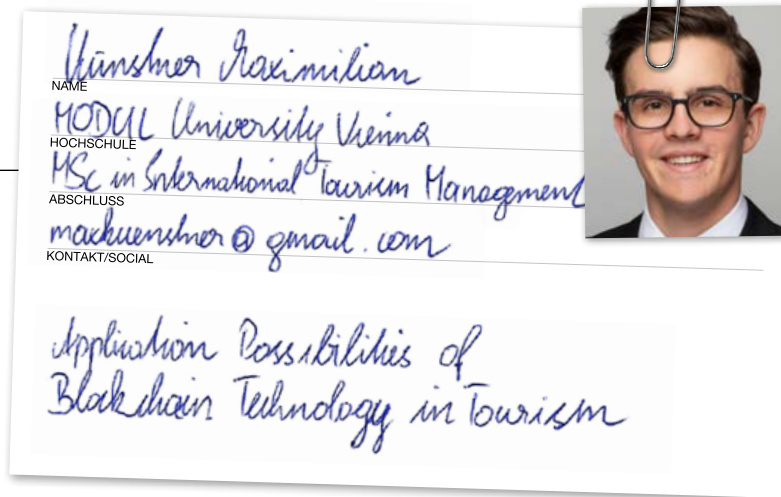 Künstner Maximilian
NAME
MODUL University Vienna
HOCHSCHULE
MSc in International Tourism Management
ABSCHLUSS
maxkuenstner@gmail.com
KONTAKT/SOCIAL
Application Possibilities of
Blockchain Technology in Tourism